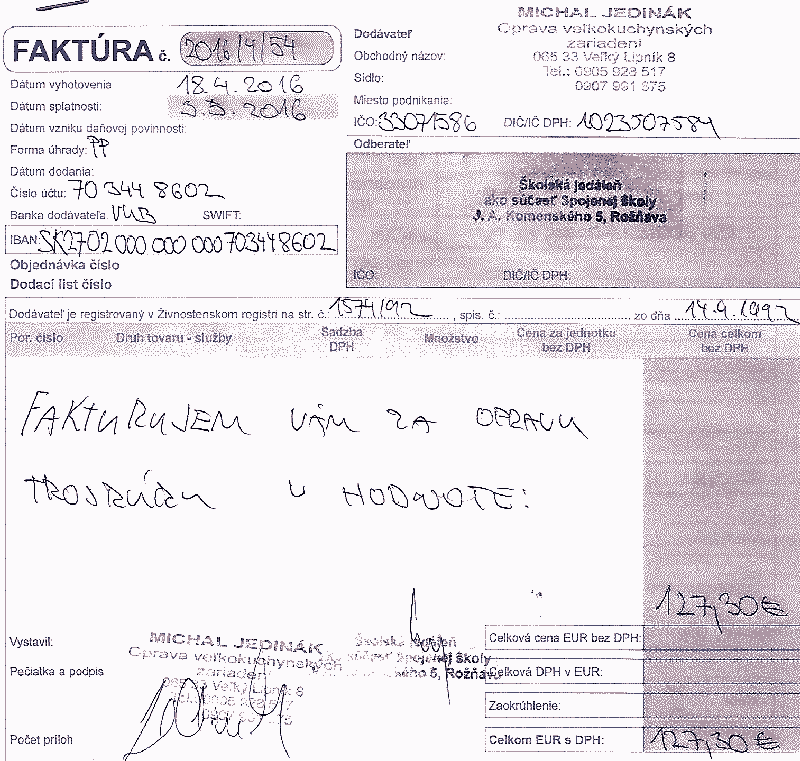 FAKTÚRA č. 2016/4/54
Dátum vyhotovenia 18.4.2016
Dátum splatnosti: 5.5.2016
Dátum vzniku daňovej povinnosti:
Forma úhrady: PP
Dátum dodania:
Číslo účtu: 70 344 8602
Banka dodávateľa: VUB SWIFT:
IBAN: SK2702 000 000 000703448602
Objednávka číslo
Dodací list číslo
Dodávateľ
Obchodný názov:
Sídlo:
Miesto podnikania:
MICHAL JEDINÁK
Oprava veľkokuchynských
zariadení
065 33 Veľký Lipník 8
Tel.: 0905 928 517
0907 991 675
IČO: 33071586 DIČ/IČ DPH: 1023507584
Odberateľ
Školská jedáleň
ako súčasť Spojenej školy
J. A. Komenského 5, Rožňava
IČO: DIČ/IČ DPH:
Dodávateľ je registrovaný v Živnostenskom registri na str. č.: 1574/92, spis. č.: zo dňa 14.9.1992
Por. číslo Druh tovaru - služby Sadzba DPH Množstvo Cena za jednotku bez DPH Cena celkom bez DPH
FAKTURUJEM VÁM ZA OPRAVU
V HODNOTE:
127,30€
Vystavil:
Pečiatka a podpis
Počet príloh
MICHAL JEDINÁK
Oprava veľkokuchynských
zariadení
065 33 Veľký Lipník 8
Školská jedáleň
súčasť Spojenej školy
Komenského 5, Rožňava
Celková cena EUR bez DPH:
Celková DPH v EUR:
Zaokrúhlenie:
Celkom EUR s DPH: 127,30€